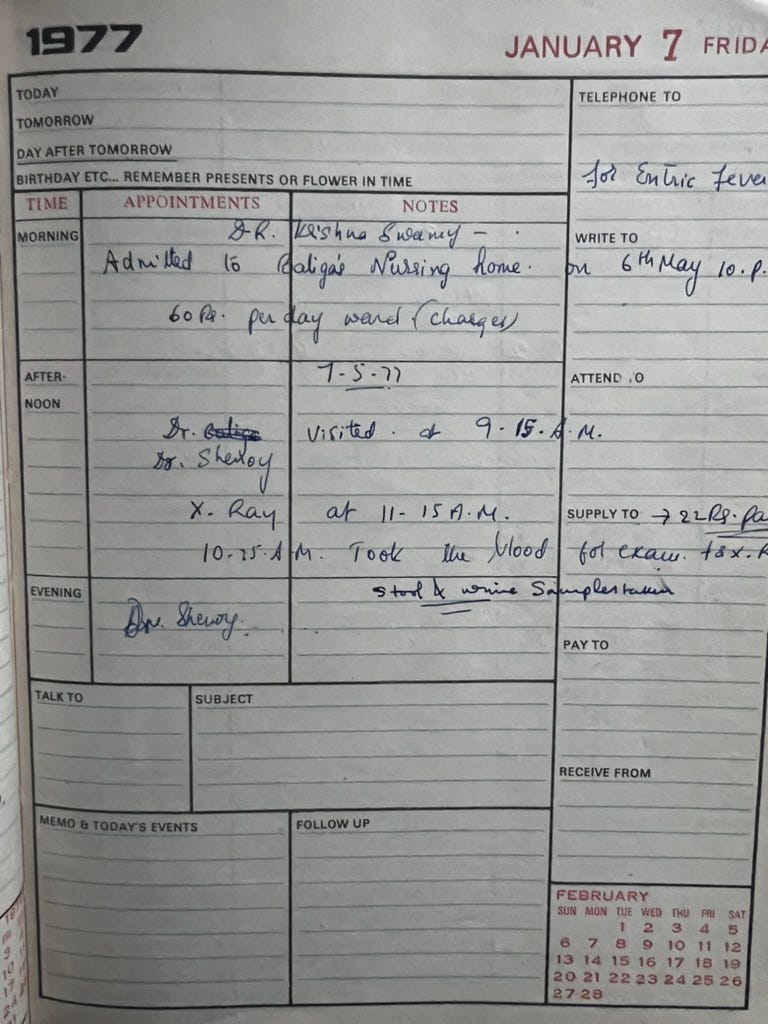 1977
JANUARY 7 FRIDA
TODAY
TOMORROW
DAY AFTER TOMORROW
BIRTHDAY ETC... REMEMBER PRESENTS OR FLOWER IN TIME
TELEPHONE TO
for Entric Feve
TIME APPOINTMENTS NOTES
MORNING
D.R. Krishna Swamy -
WRITE TO
Admitted to Baliga's Nursing home. on 6th May 10.P.
60 Rs. per day ward (charges)
AFTER-
NOON
7-5-77
ATTEND TO
Dr. Visited at 9-15.A.M.
Dr. Shenoy
X. Ray at 11-15 A.M.
SUPPLY TO → 22 Rs. pa
10-25.A.M. Took the blood for exam.
EVENING
stool & urine Samples taken
Dr. Shenoy.
PAY TO
TALK TO
SUBJECT
RECEIVE FROM
MEMO & TODAY'S EVENTS
FOLLOW UP
FEBRUARY
SUN MON TUE WED THU FRI SAT
1 2 3 4 5
6 7 8 9 10 11 12
13 14 15 16 17 18 19
20 21 22 23 24 25 26
27 28